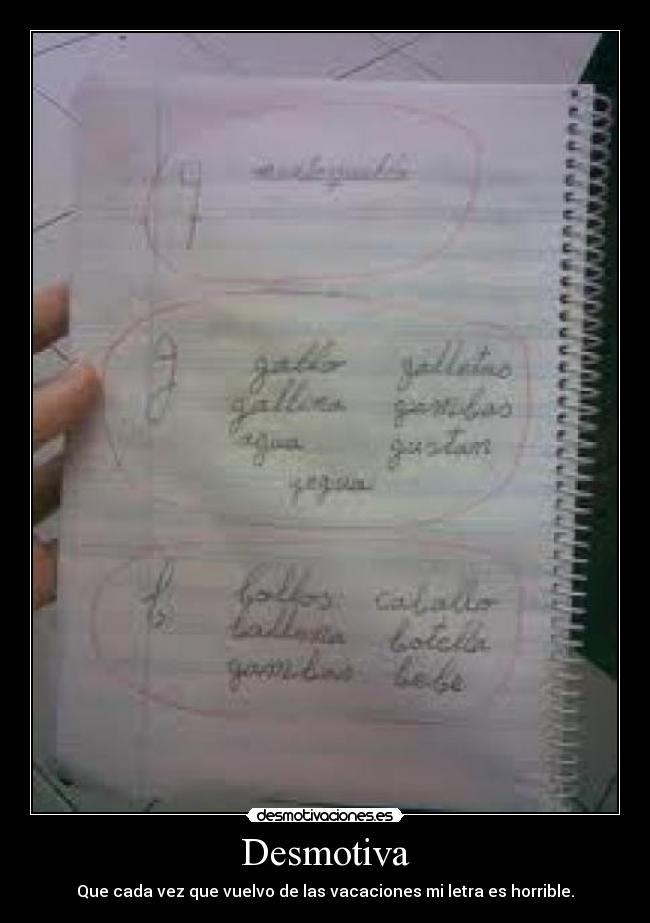 g
g gallo galletas
gallina gambas
agua gustan
yegua
b bollos caballo
ballena botella
gambas bebe
desmotivaciones.es
Desmotiva
Que cada vez que vuelvo de las vacaciones mi letra es horrible.